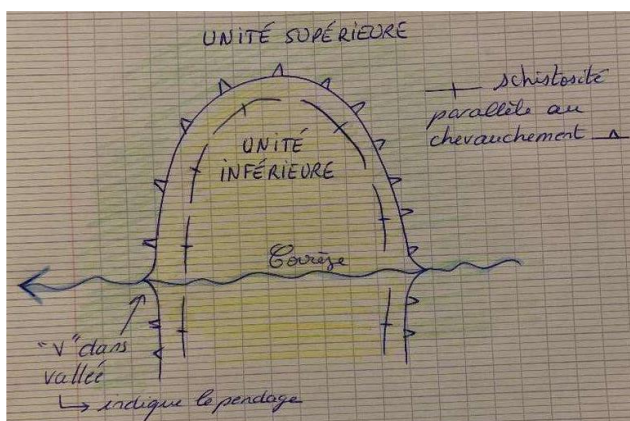 UNITÉ SUPÉRIEURE
schistosité
parallèle au
chevauchement
UNITÉ
INFÉRIEURE
Corrèze
"V" dans
vallée
indique le pendage